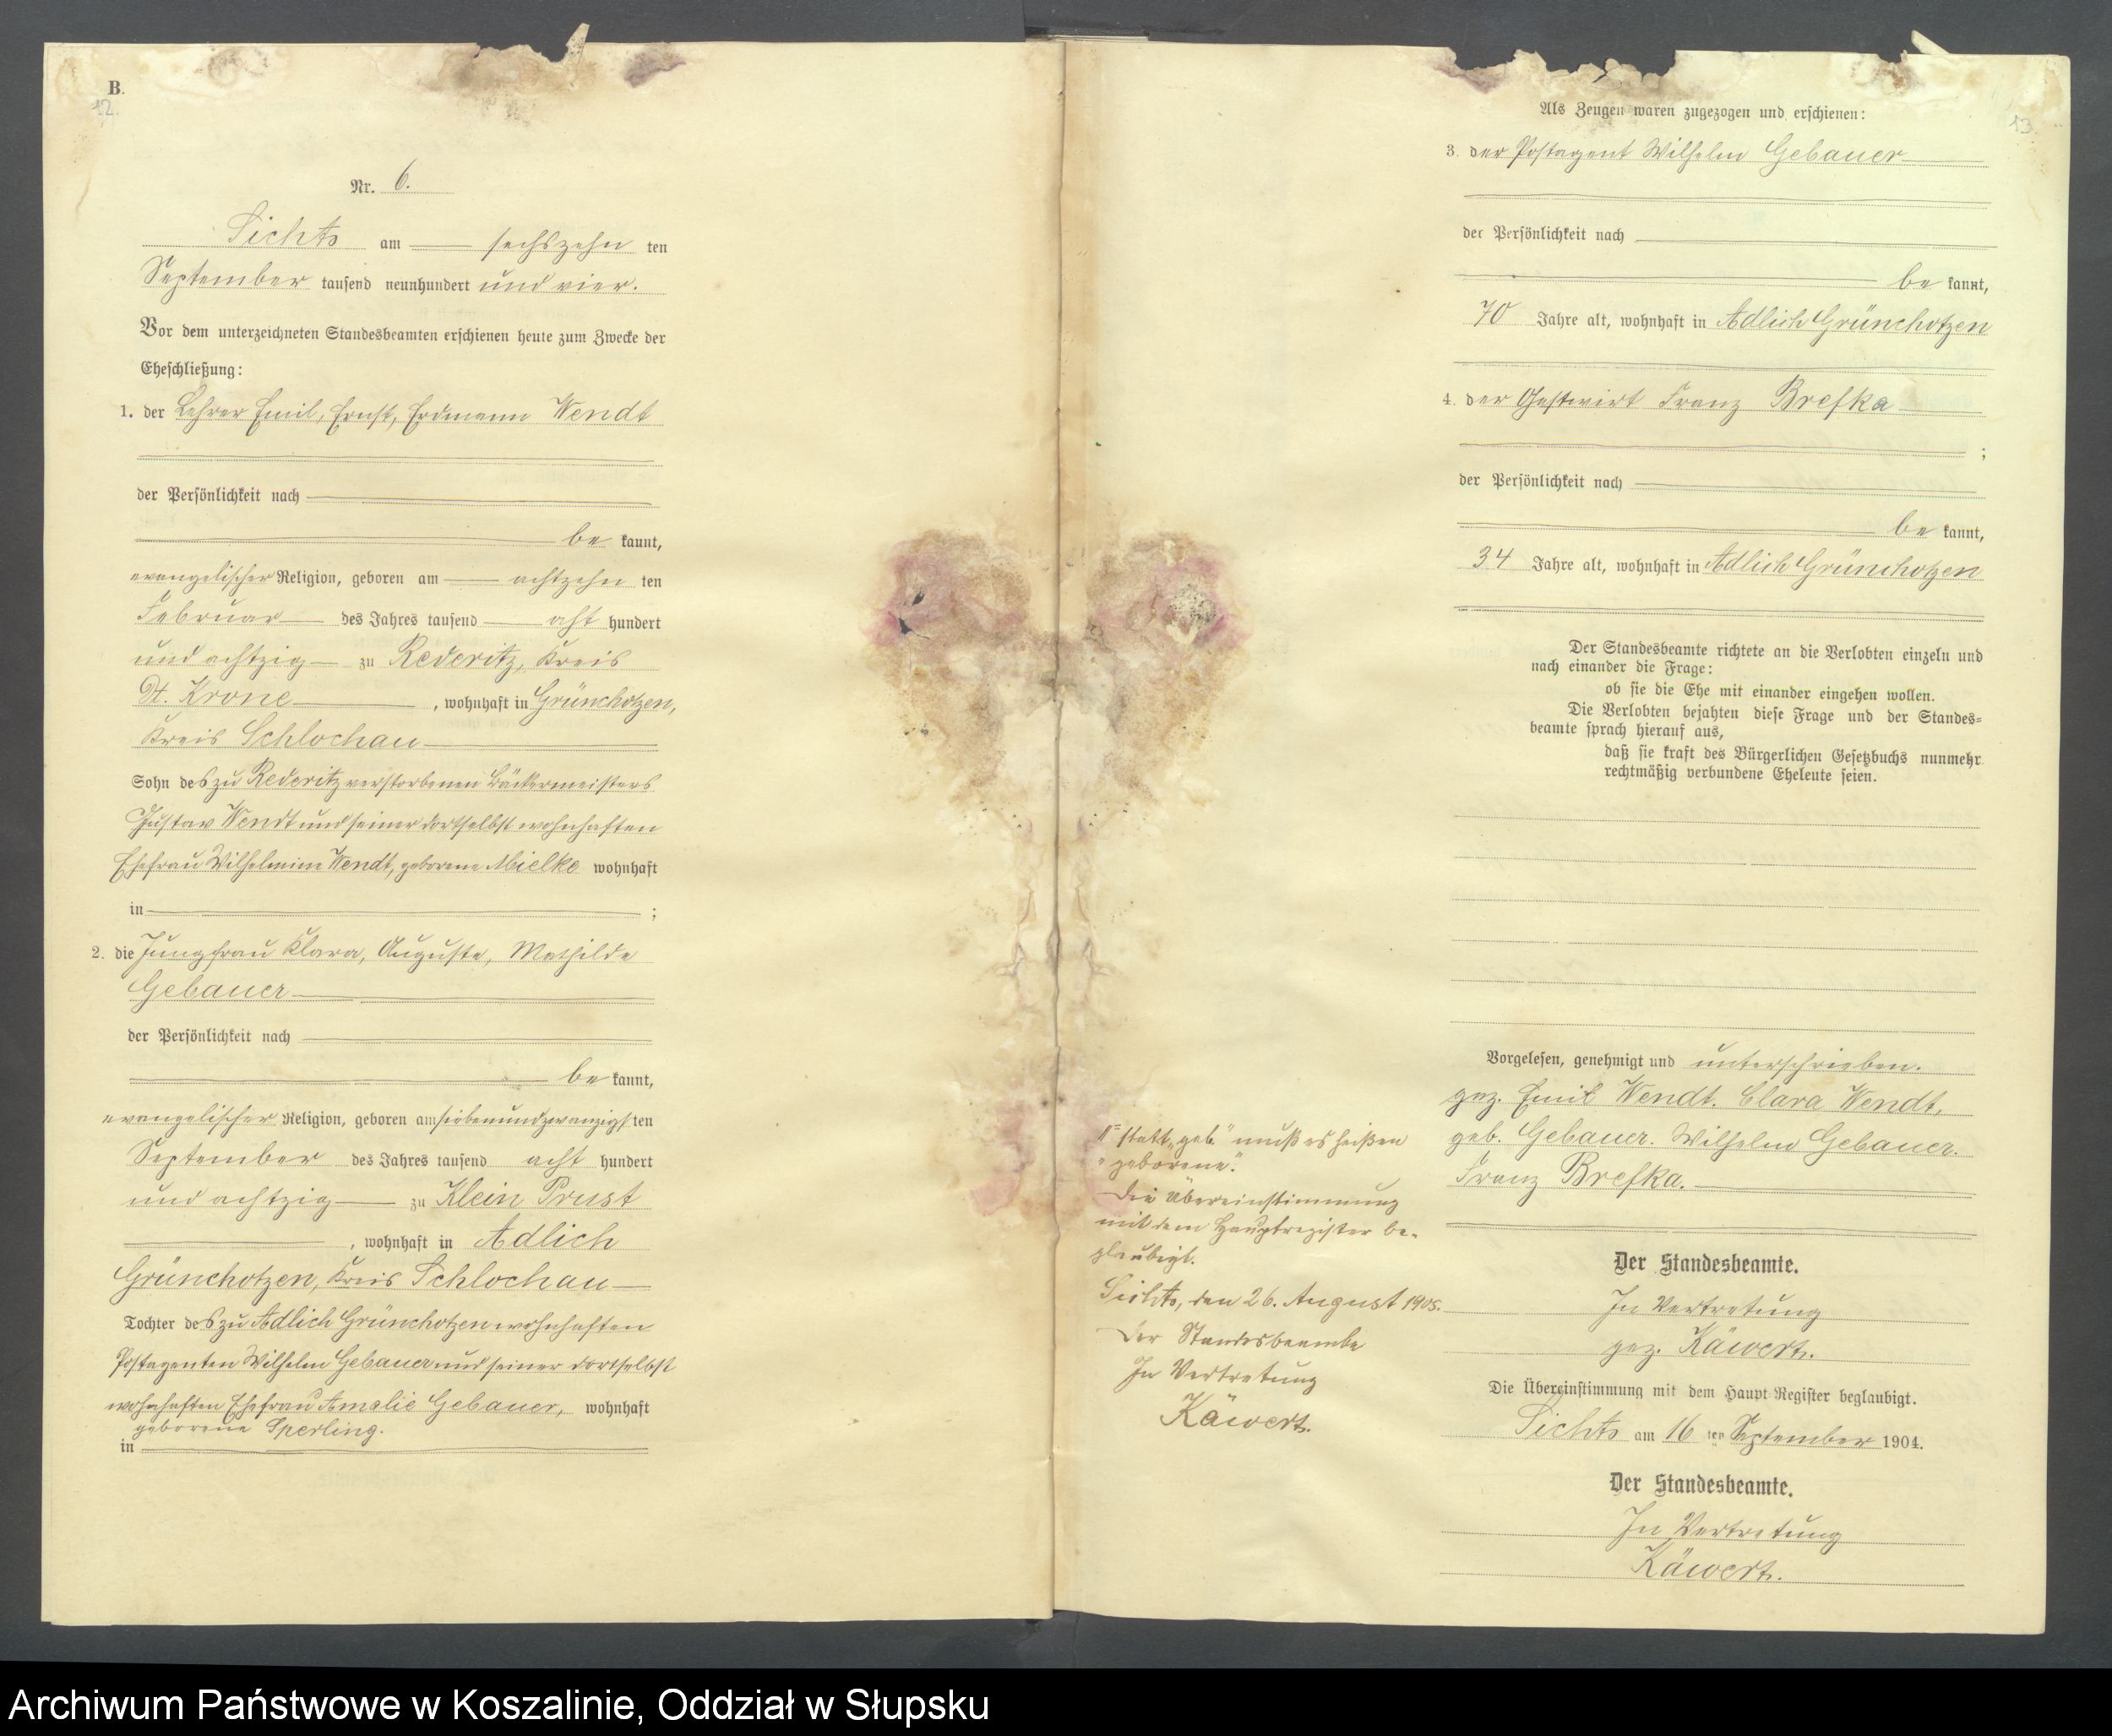 B.
12.
Nr. 6.
Sichts am sechszehn ten
September tausend neunhundert und vier.
Vor dem unterzeichneten Standesbeamten erschienen heute zum Zwecke der
Eheschließung:
1. der Lehrer Emil, Ernst, Erdmann Wendt
der Persönlichkeit nach
be kannt,
evangelischer Religion, geboren am achtzehn ten
Februar des Jahres tausend acht hundert
und achtzig zu Rederitz, Kreis
Dt. Krone, wohnhaft in Grünchotzen,
Kreis Schlochau
Sohn des zu Rederitz verstorbenen Bäckermeisters
Gustav Wendt und seiner dortselbst wohnhaften
Ehefrau Wilhelmine Wendt, geborene Mielke wohnhaft
in ;
2. die Jungfrau Klara, Auguste, Mathilde
Gebauer
der Persönlichkeit nach
be kannt,
evangelischer Religion, geboren am siebenundzwanzigsten
September des Jahres tausend acht hundert
und achtzig zu Klein Prust
, wohnhaft in Adlich
Grünchotzen, Kreis Schlochau
Tochter des zu Adlich Grünchotzen wohnhaften
Postagenten Wilhelm Gebauer und seiner dortselbst
wohnhaften Ehefrau Amalie Gebauer, wohnhaft
geborene Sperling.
in
13.
Als Zeugen waren zugezogen und erschienen:
3. der Postagent Wilhelm Gebauer
der Persönlichkeit nach
be kannt,
70 Jahre alt, wohnhaft in Adlich Grünchotzen
4. der Gastwirt Franz Brefka
;
der Persönlichkeit nach
be kannt,
34 Jahre alt, wohnhaft in Adlich Grünchotzen
Der Standesbeamte richtete an die Verlobten einzeln und
nach einander die Frage:
ob sie die Ehe mit einander eingehen wollen.
Die Verlobten bejahten diese Frage und der Standes=
beamte sprach hierauf aus,
daß sie kraft des Bürgerlichen Gesetzbuchs nunmehr
rechtmäßig verbundene Eheleute seien.
Vorgelesen, genehmigt und unterschrieben.
gez. Emil Wendt. Clara Wendt,
geb. Gebauer. Wilhelm Gebauer.
Franz Brefka.
Der Standesbeamte.
In Vertretung
gez. Käwert.
Die Übereinstimmung mit dem Haupt-Register beglaubigt.
Sichts am 16 ten September 1904.
Der Standesbeamte.
In Vertretung
Käwert.
statt „geb." muß es heißen
„geborene".
Die Übereinstimmung
mit dem Hauptregister be-
glaubigt.
Sichts, den 26. August 1905.
Der Standesbeamte
In Vertretung
Käwert.
Archiwum Państwowe w Koszalinie, Oddział w Słupsku